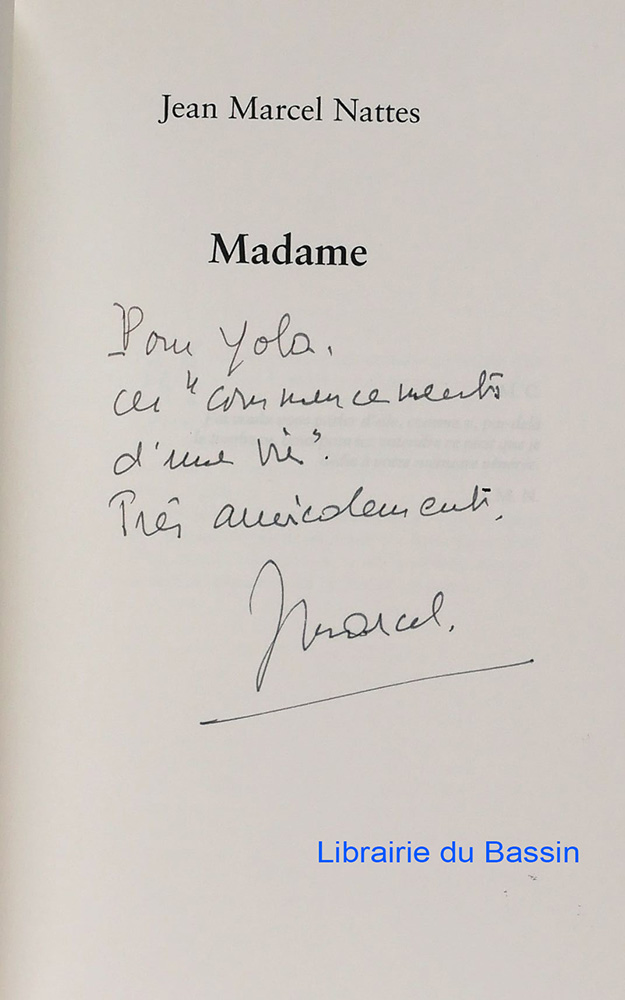 Jean Marcel Nattes
Madame
Pour Yola,
ces "commencements
d'une vie".
Très amicalement,
JMarcel.
Librairie du Bassin